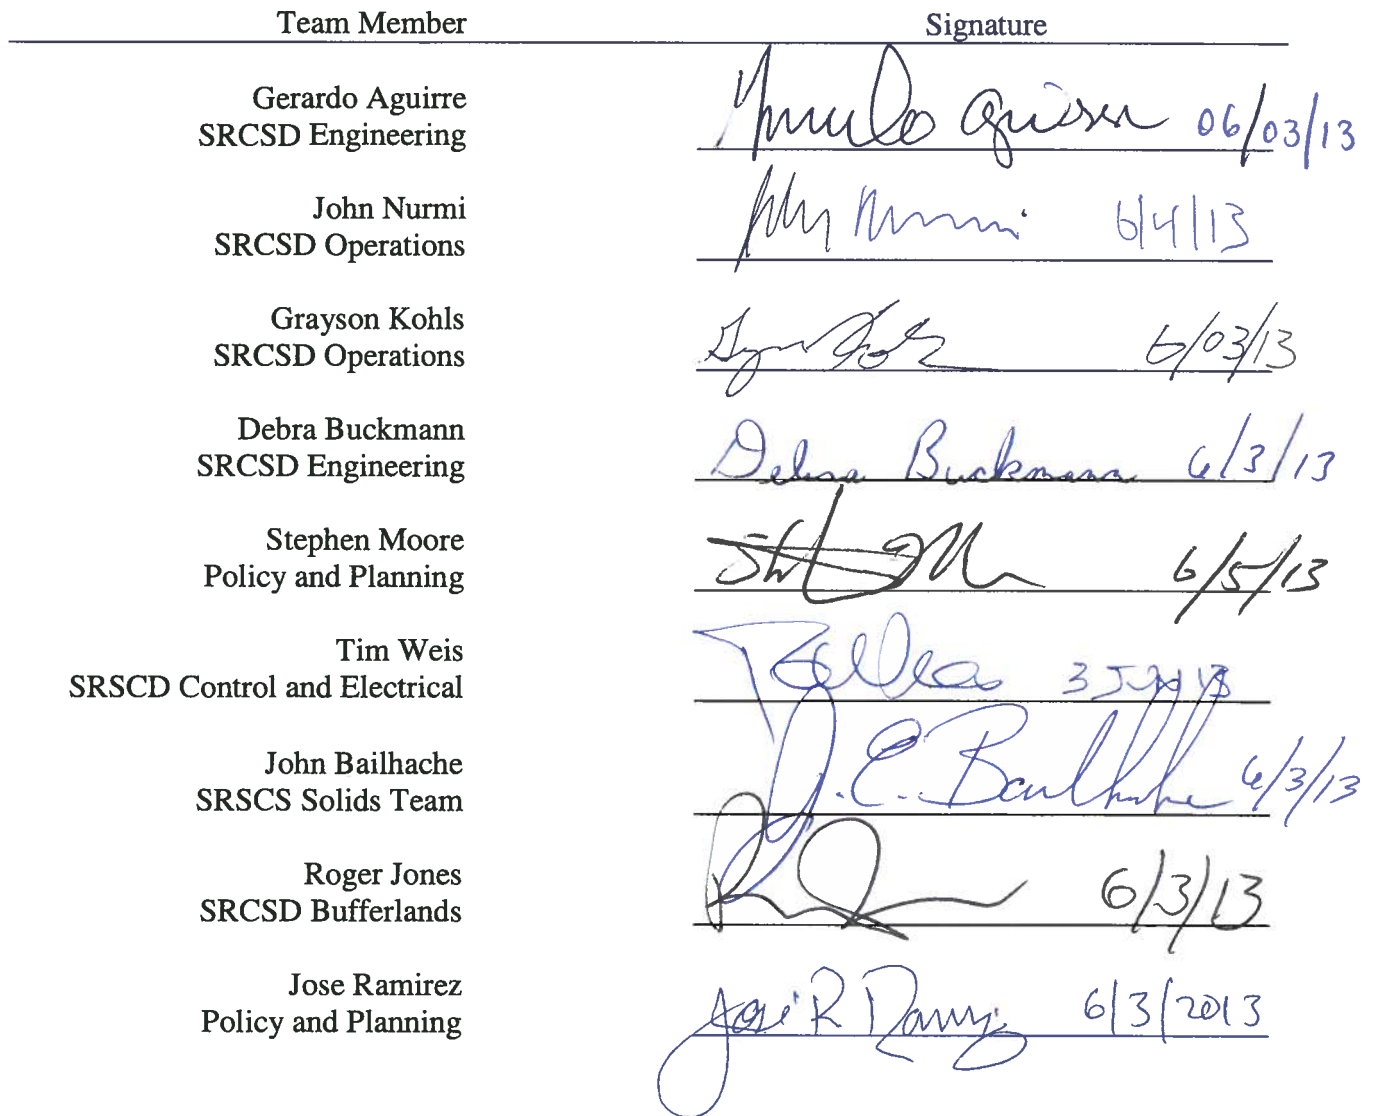 Team Member Signature
Gerardo Aguirre
SRCSD Engineering
Gerardo Aguirre 06/03/13
John Nurmi
SRCSD Operations
John Nurmi 6/4/13
Grayson Kohls
SRCSD Operations
6/03/13
Debra Buckmann
SRCSD Engineering
Debra Buckmann 6/3/13
Stephen Moore
Policy and Planning
6/5/13
Tim Weis
SRSCD Control and Electrical
3 JUN 13
John Bailhache
SRSCS Solids Team
J.E. Bailhache 6/3/13
Roger Jones
SRCSD Bufferlands
6/3/13
Jose Ramirez
Policy and Planning
José R Ramirez 6/3/2013